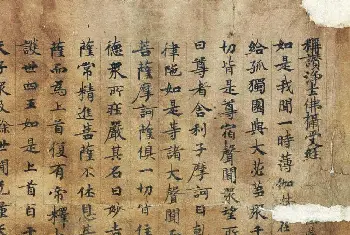 稱讚淨土佛攝受經
如是我聞一時薄伽梵在
給孤獨園與大苾芻眾千
切皆是尊宿聲聞眾望所
曰尊者舍利子摩訶目
律陀如是等諸大聲聞而
菩薩摩訶薩俱一切皆住
德眾所莊嚴其名曰妙吉
薩常精進菩薩不休息菩
薩而為上首復有帝釋
護世四王如是上首百千
天子眾及餘世間無量天